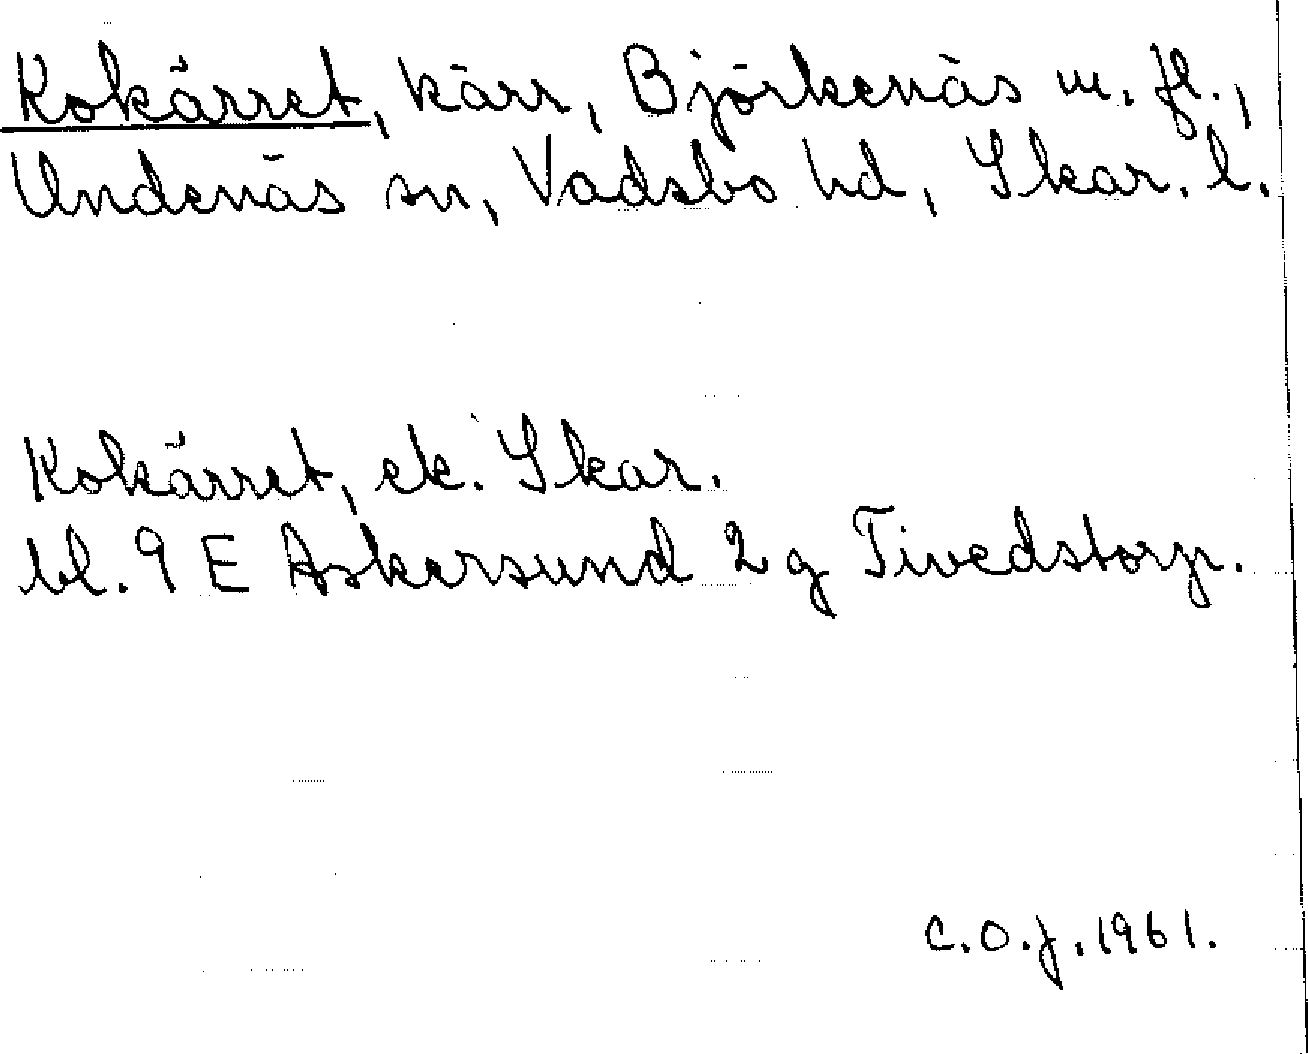 Kokärret, kärr, Björkenäs m. fl.,
Undenäs sn, Vadsbo hd, Skar. l.
Kokärret, ek. Skar.
bl. 9 E Askersund 2 g Tivedstorp.
C.O.J. 1961.